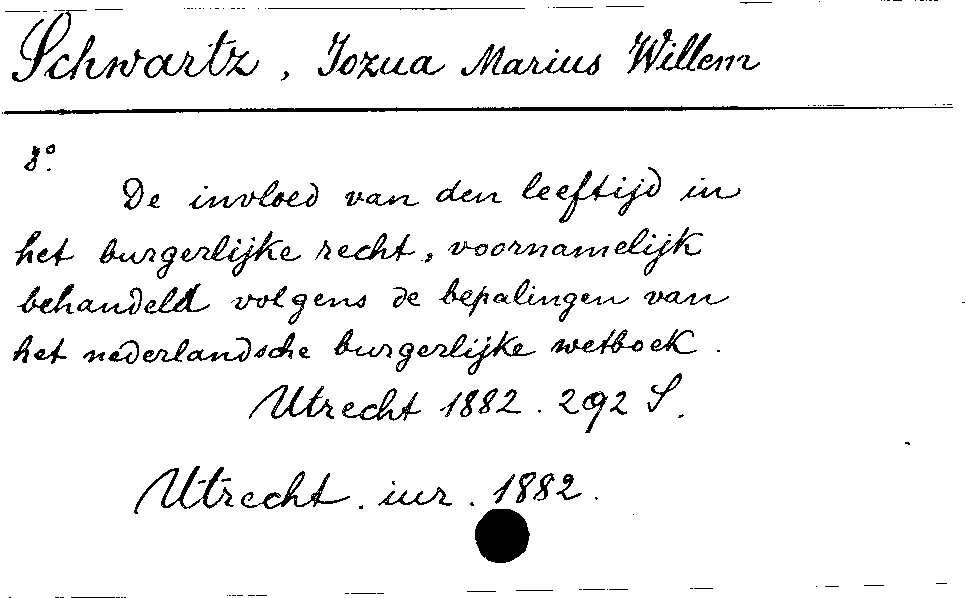 Schwartz, Jozua Marius Willem
8°.
De invloed van den leeftijd in
het burgerlijke recht, voornamelijk
behandeld volgens de bepalingen van
het nederlandsche burgerlijke wetboek.
Utrecht 1882. 292 S.
Utrecht. iur. 1882.